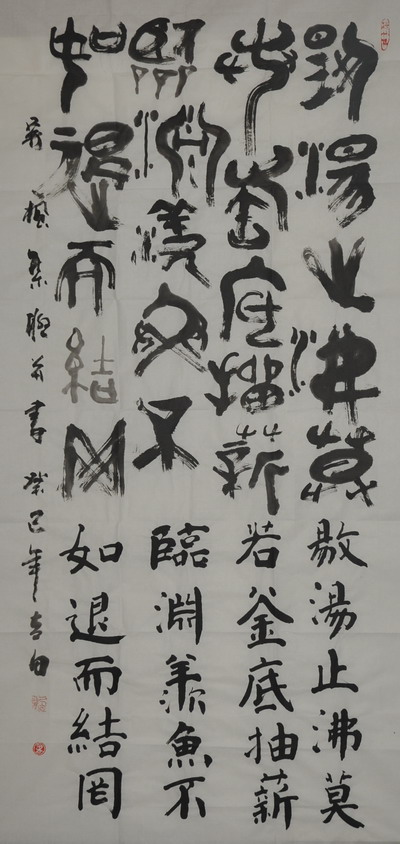 敭湯止沸莫
若釜底抽薪
臨淵羨魚不
如退而結网
敭湯止沸莫
若釜底抽薪
臨淵羨魚不
如退而結罔
楓集聯并書癸巳年